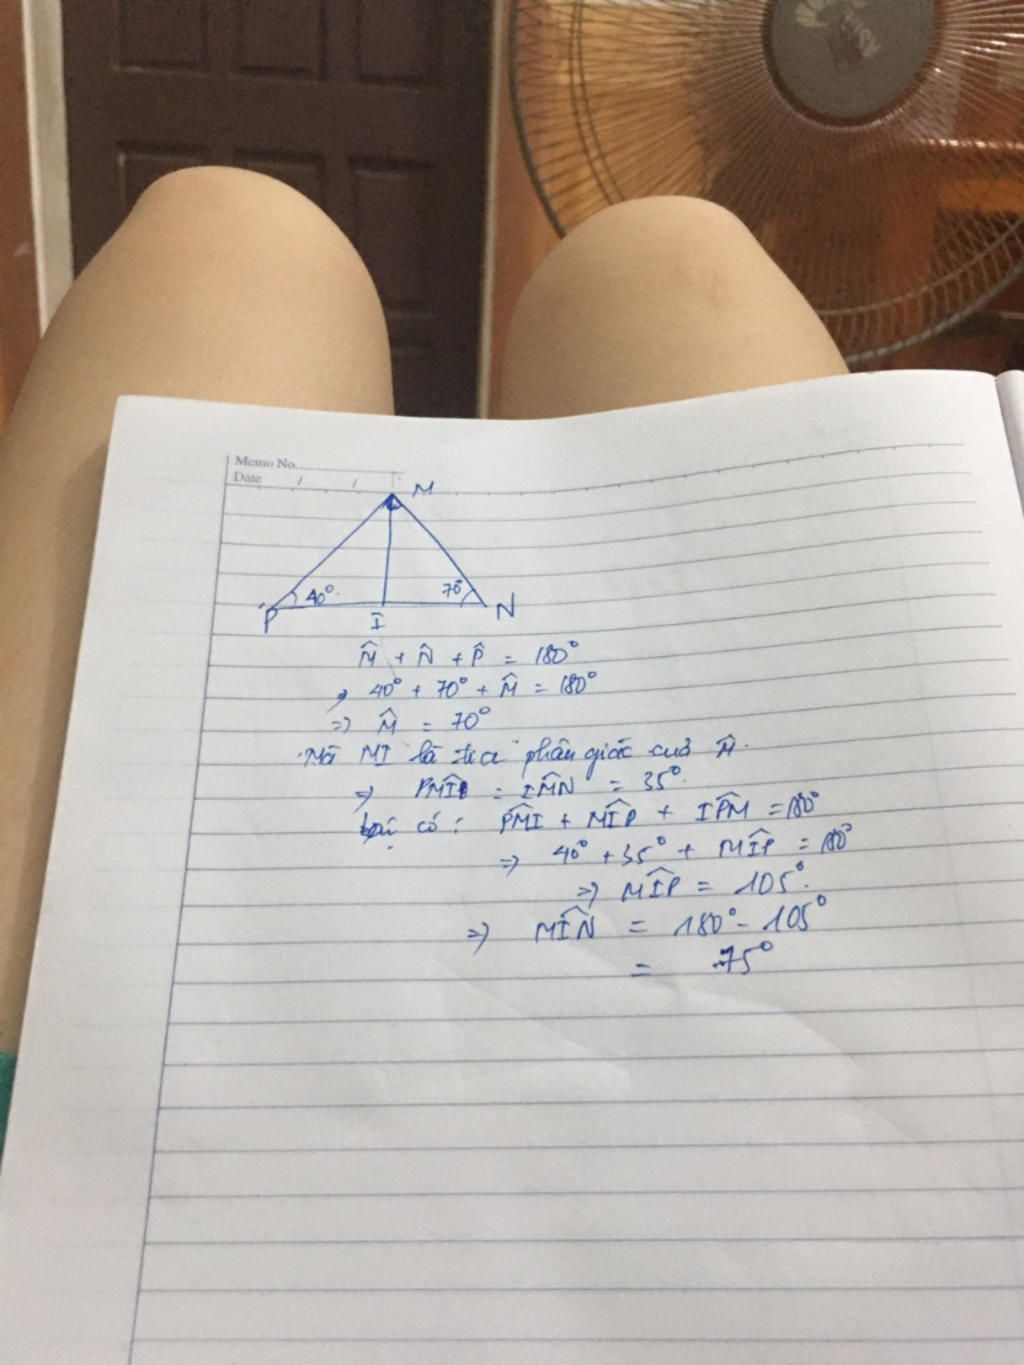 Memo No.
Date / /
M
40° 70°
P I N
M̂ + N̂ + P̂ = 180°
=> 40° + 70° + M̂ = 180°
=> M̂ = 70°
Mà MI là tia phân giác của M̂.
=> PM̂I = IM̂N = 35°.
có: PM̂I + MÎP + IP̂M = 180°
=> 40° + 35° + MÎP = 180°
=> MÎP = 105°.
=> MÎN = 180° - 105°
= 75°